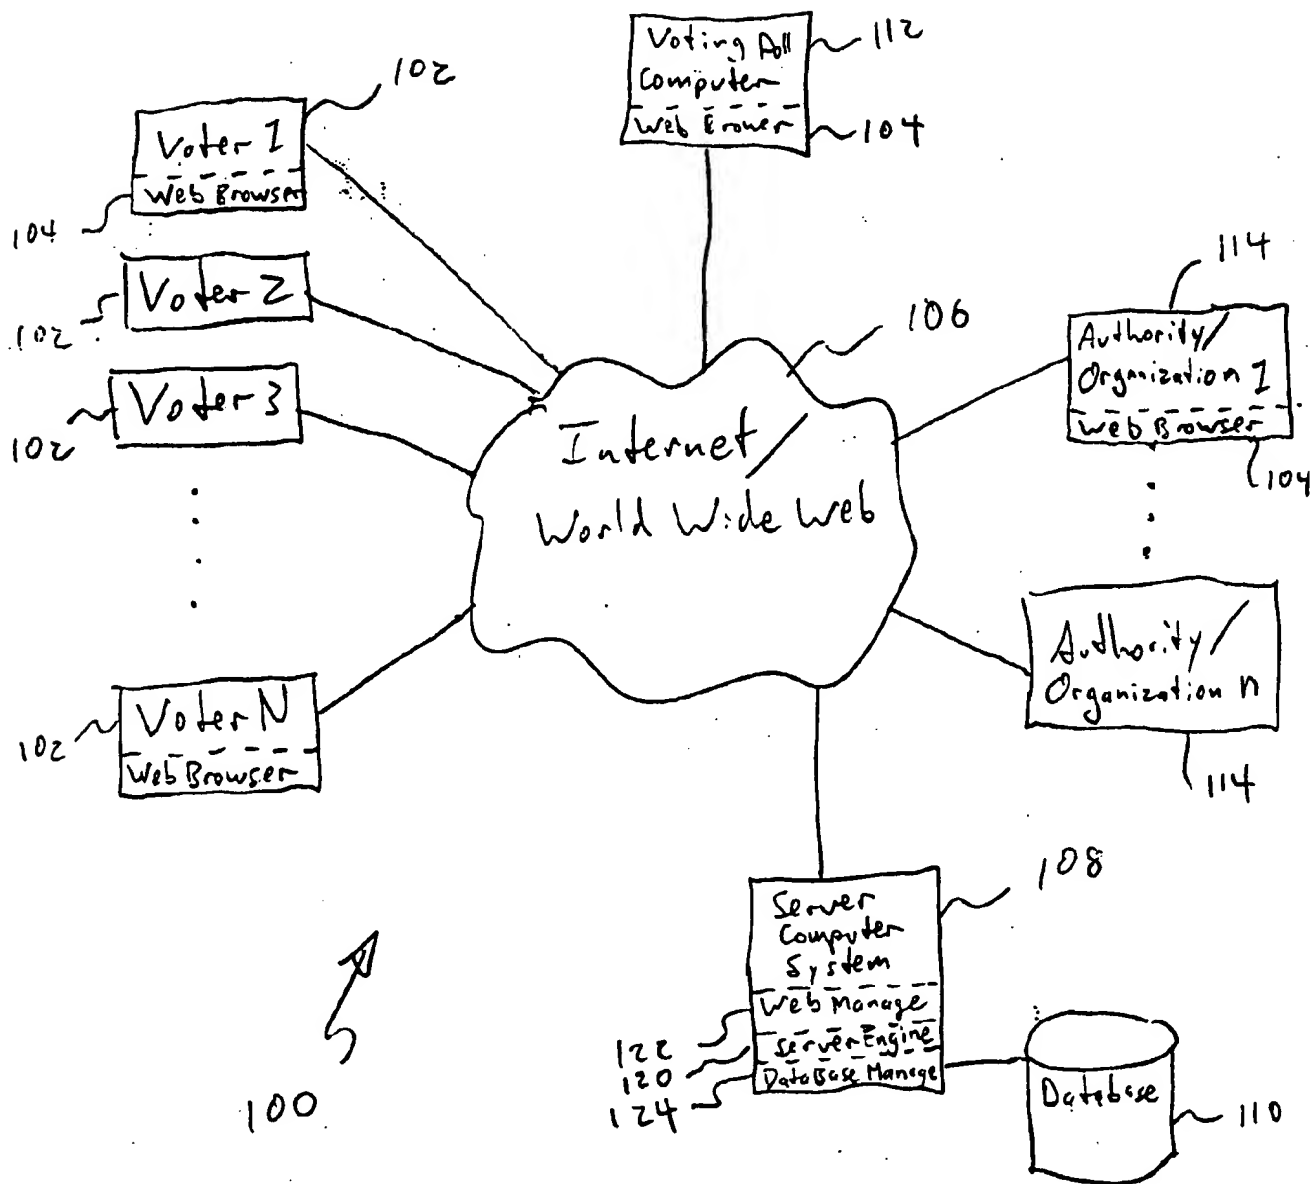 Voting Poll
Computer
Web Brower
112
104
102
Voter 1
Web Browser
104
Voter 2
102
Voter 3
102
Voter N
Web Browser
102
106
Internet/
World Wide Web
114
Authority/
Organization 1
Web Browser
104
Authority/
Organization n
114
108
Server
Computer
System
Web Manage
Server Engine
DataBase Manage
122
120
124
Database
110
100